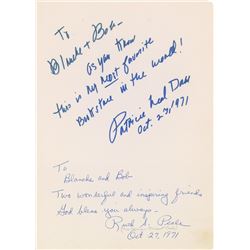 To
Blanche + Bob -
as you know
this is my most favorite
Bookstore in the world!
Patricia Neal Dahl
Oct. 27, 1971
To
Blanche and Bob
Two wonderful and inspiring friends
God bless you always -
Ruth S. Peale
Oct 27, 1971